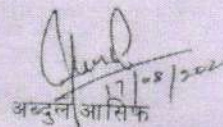 17/08/202
अब्दुल आसिफ